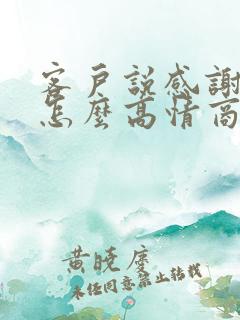 客戶説感謝
怎麼高情商
黄晓庆
未经同意禁止转载